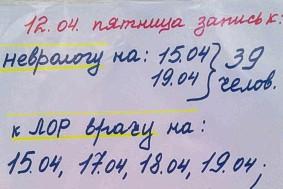 12.04. пятница запись к:
неврологу на: 15.04 } 39
19.04 } челов.
к ЛОР врачу на:
15.04, 17.04, 18.04, 19.04;